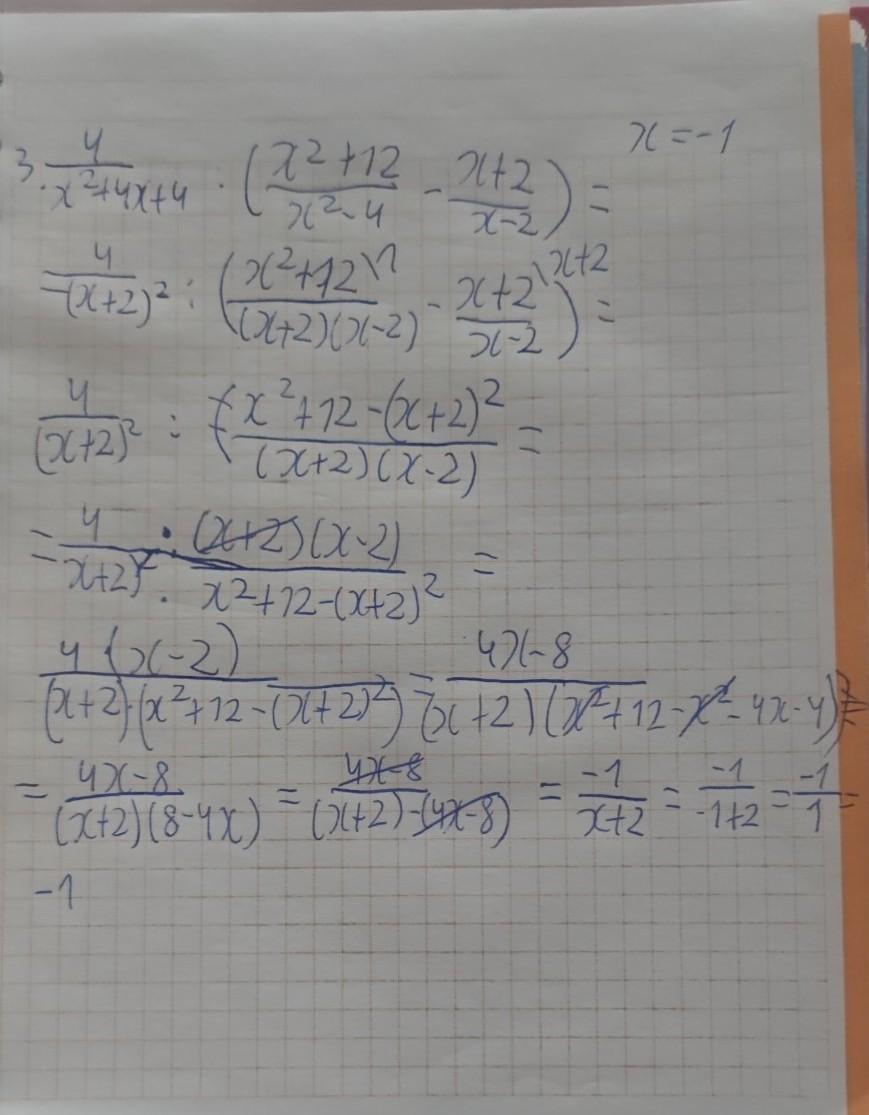 x = -1
3. 4/(x²+4x+4) : ((x²+12)/(x²-4) - (x+2)/(x-2)) =
= 4/(x+2)² : ((x²+12\1)/((x+2)(x-2)) - (x+2\x+2)/(x-2)) =
4/(x+2)² : ((x²+12-(x+2)²)/((x+2)(x-2)) =
= 4/x+2)² · (x+2)(x-2)/(x²+12-(x+2)²) =
4(x-2)/((x+2)·(x²+12-(x+2)²)) = (4x-8)/((x+2)(x²+12-x²-4x-4)) =
= (4x-8)/((x+2)(8-4x)) = (4x-8)/((x+2)-(4x-8)) = -1/(x+2) = -1/(-1+2) = -1/1 =
-1